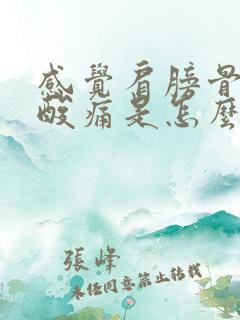 感覺肩膀骨
酸痛是怎麼
張峰
未經同意禁止轉載